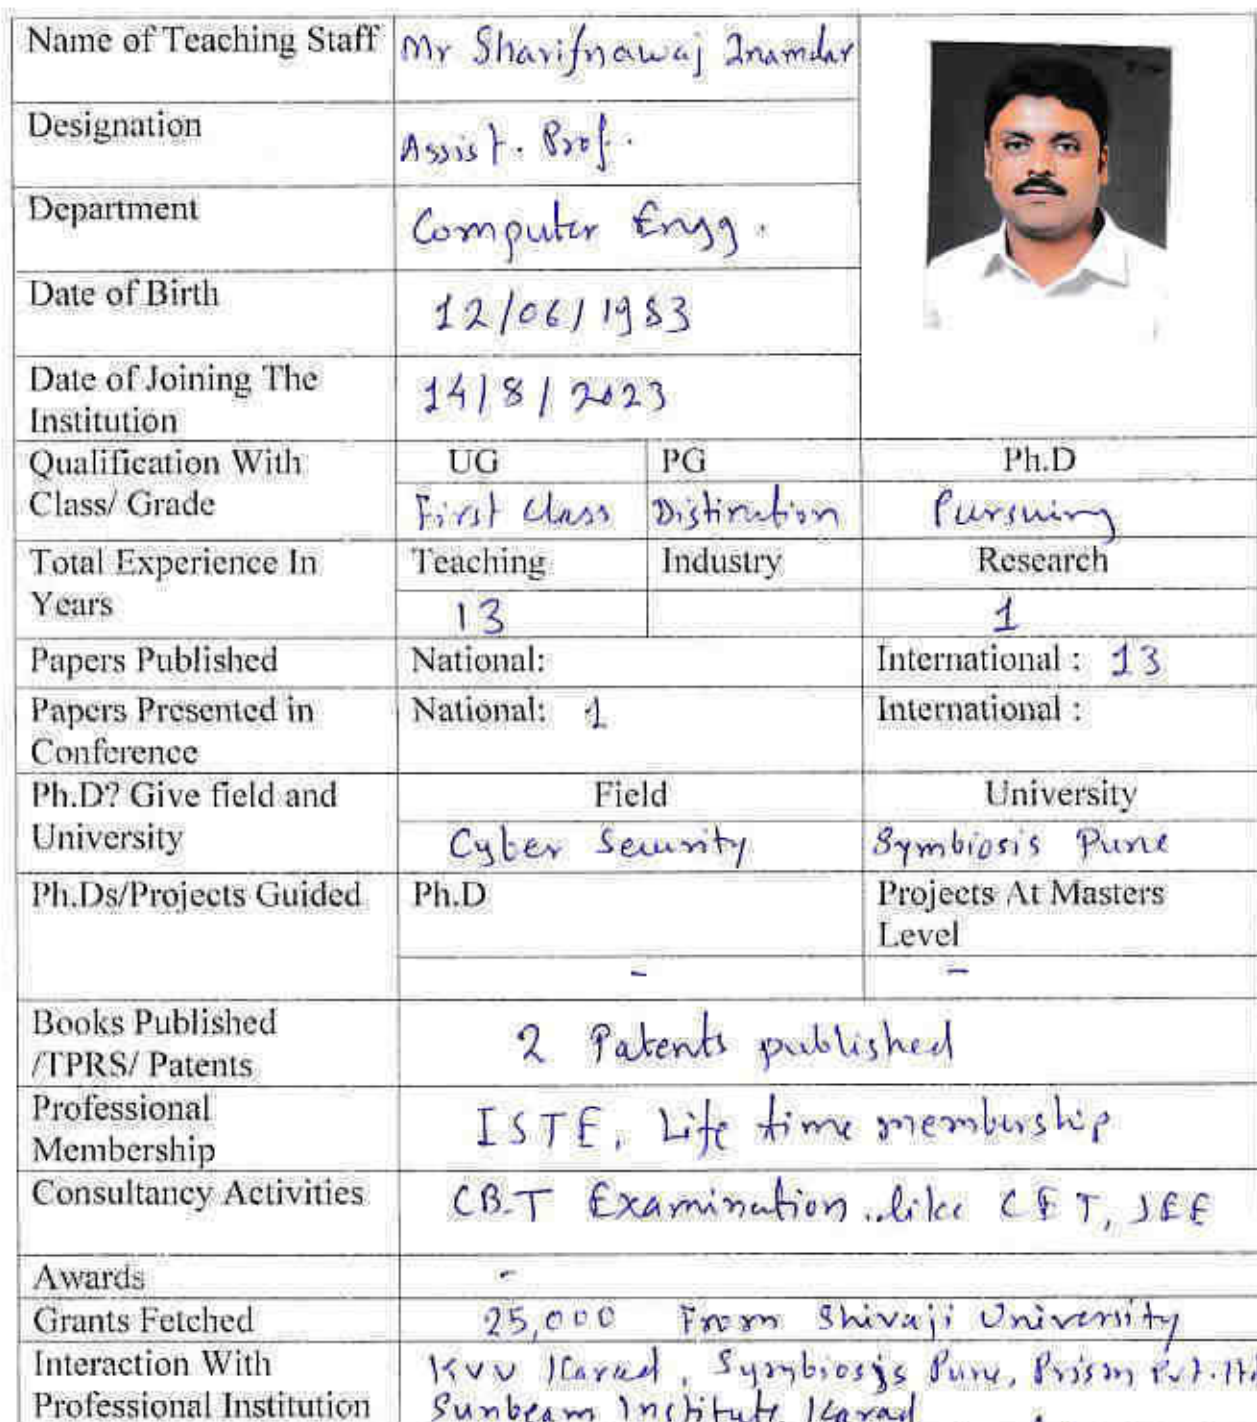 Name of Teaching Staff Mr Sharifnawaj Inamdar
Designation Assist. Prof.
Department Computer Engg.
Date of Birth 12/06/1983
Date of Joining The
Institution 14/8/2023
Qualification With UG PG Ph.D
Class/ Grade First Class Distinction Pursuing
Total Experience In Teaching Industry Research
Years 13 1
Papers Published National: International : 13
Papers Presented in National: 1 International :
Conference
Ph.D? Give field and Field University
University Cyber Security Symbiosis Pune
Ph.Ds/Projects Guided Ph.D Projects At Masters
Level
- -
Books Published 2 Patents published
/TPRS/ Patents
Professional ISTE, Life time membership
Membership
Consultancy Activities CB.T Examination..like CET, JEE
Awards -
Grants Fetched 25,000 From Shivaji University
Interaction With KVV Karad, Symbiosis Pune, Prism Pvt.
Professional Institution Sunbeam Institute Karad